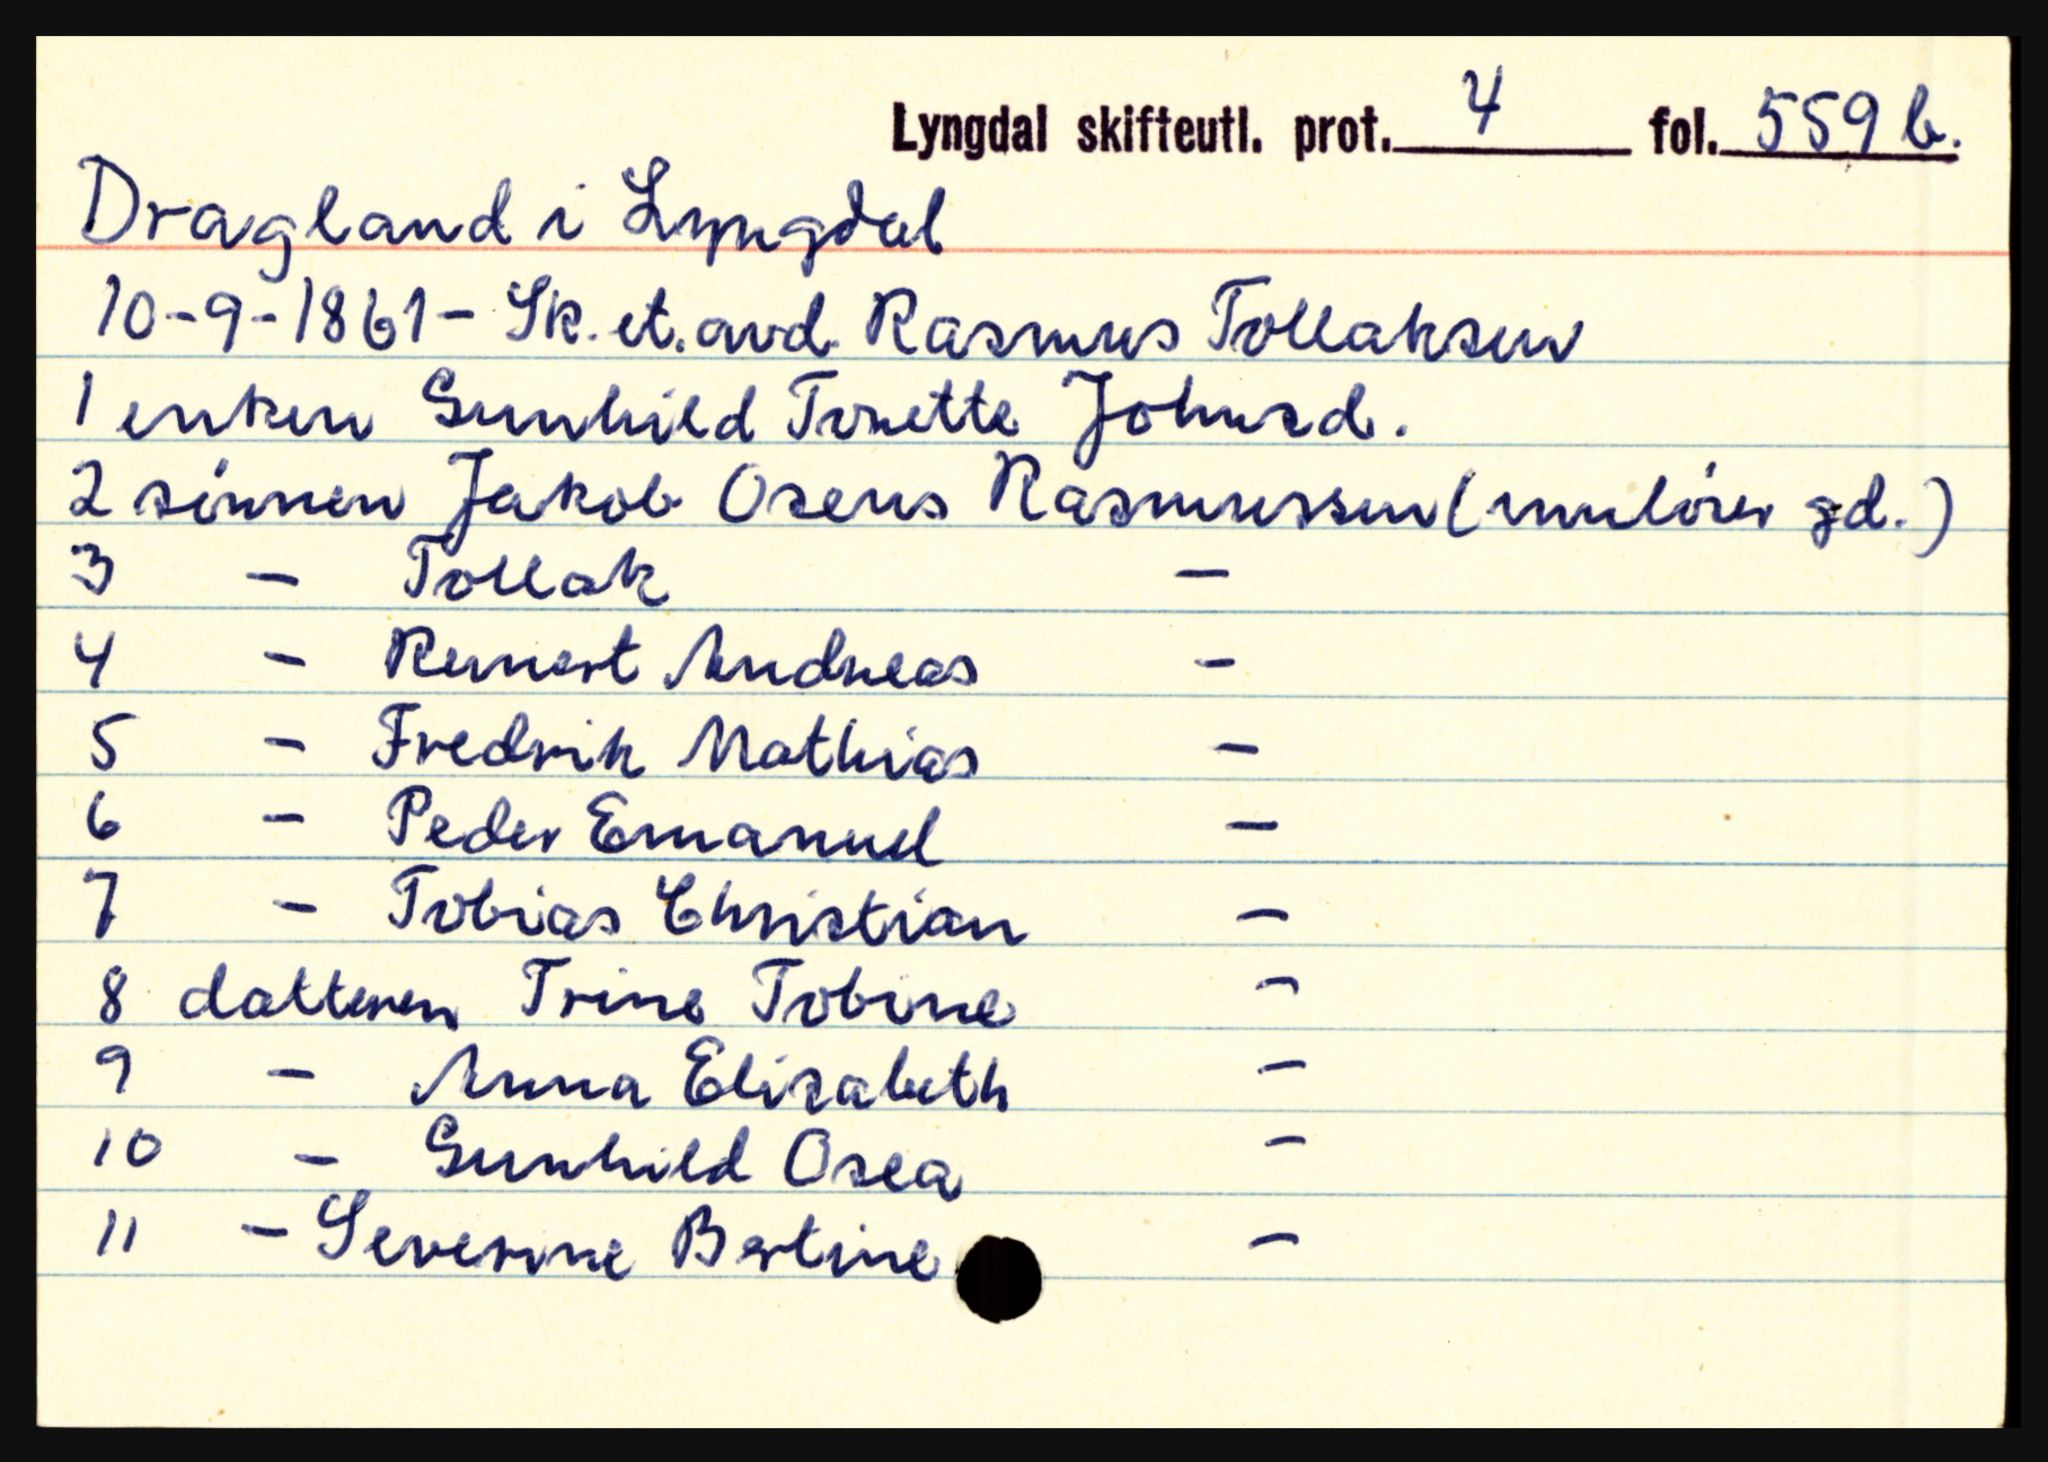 Lyngdal skifteutl. prot. 4 fol. 559 b.
Dragland i Lyngdal
10-9-1861- Sk. et. avd. Rasmus Tollaksen
1 enken Gunhild Tonette Johnsd.
2 sönnen Jakob Oseus Rasmussen (umlörer gd.)
3 - Tollak -
4 - Reinert Andreas -
5 - Fredrik Mathias -
6 - Peder Emanuel -
7 - Tobias Christian -
8 datteren Trine Tobine -
9 - Anna Elisabeth -
10 - Gunhild Osea -
11 - Severine Bertine -